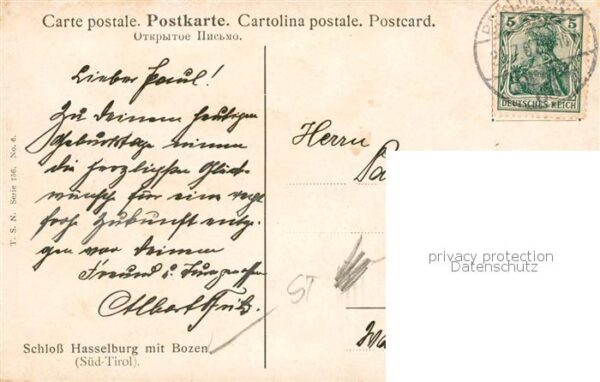 Carte postale. Postkarte. Cartolina postale. Postcard.
Открытое Письмо.
5 5
DEUTSCHES REICH
Lieber Paul!
Zu Deinem heutigen
Geburtstage meinen
die herzlichsten Glück-
wunsch für eine recht
frohe Zukunft
von Deinem
Freund
Albert
Herrn
T. S. N. Serie 756. No. 6.
privacy protection
Datenschutz
ST
Schloß Hasselburg mit Bozen
(Süd-Tirol).